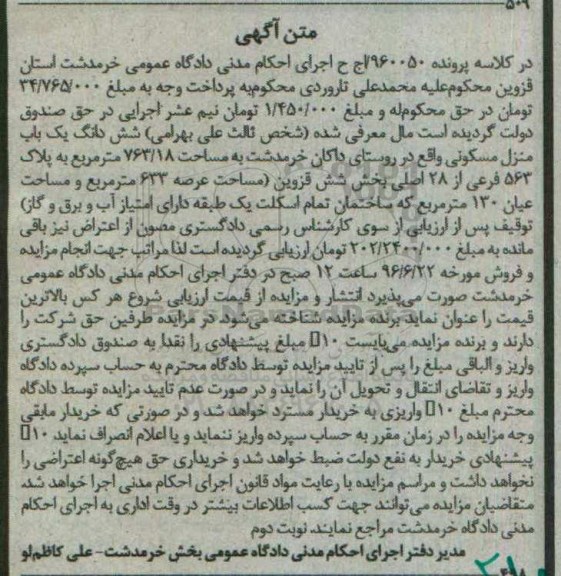 ۵۰۹
متن آگهی
در کلاسه پرونده ۹۶۰۰۵۰/اج ح اجرای احکام مدنی دادگاه عمومی خرمدشت استان
قزوین محکوم‌علیه محمدعلی تاروردی محکوم‌به پرداخت وجه به مبلغ ۳۴/۷۶۵/۰۰۰
تومان در حق محکوم‌له و مبلغ ۱/۴۵۰/۰۰۰ تومان نیم عشر اجرایی در حق صندوق
دولت گردیده است مال معرفی شده (شخص ثالث علی بهرامی) شش دانگ یک باب
منزل مسکونی واقع در روستای داکان خرمدشت به مساحت ۷۶۳/۱۸ مترمربع به پلاک
۵۶۳ فرعی از ۲۸ اصلی بخش شش قزوین (مساحت عرصه ۶۳۳ مترمربع و مساحت
عیان ۱۳۰ مترمربع که ساختمان تمام اسکلت یک طبقه دارای امتیاز آب و برق و گاز)
توقیف پس از ارزیابی از سوی کارشناس رسمی دادگستری مصون از اعتراض نیز باقی
مانده به مبلغ ۲۰۲/۲۴۰۰/۰۰۰ تومان ارزیابی گردیده است لذا مراتب جهت انجام مزایده
و فروش مورخه ۹۶/۶/۲۲ ساعت ۱۲ صبح در دفتر اجرای احکام مدنی دادگاه عمومی
خرمدشت صورت می‌پذیرد انتشار و مزایده از قیمت ارزیابی شروع هر کس بالاترین
قیمت را عنوان نماید برنده مزایده شناخته می‌شود در مزایده طرفین حق شرکت را
دارند و برنده مزایده می‌بایست ۱۰ مبلغ پیشنهادی را نقدا به صندوق دادگستری
واریز و الباقی مبلغ را پس از تایید مزایده توسط دادگاه محترم به حساب سپرده دادگاه
واریز و تقاضای انتقال و تحویل آن را نماید و در صورت عدم تایید مزایده توسط دادگاه
محترم مبلغ ۱۰ واریزی به خریدار مسترد خواهد شد و در صورتی که خریدار مابقی
وجه مزایده را در زمان مقرر به حساب سپرده واریز ننماید و یا اعلام انصراف نماید ۱۰
پیشنهادی خریدار به نفع دولت ضبط خواهد شد و خریداری حق هیچ‌گونه اعتراضی را
نخواهد داشت و مراسم مزایده با رعایت مواد قانون اجرای احکام مدنی اجرا خواهد شد،
متقاضیان مزایده می‌توانند جهت کسب اطلاعات بیشتر در وقت اداری به اجرای احکام
مدنی دادگاه خرمدشت مراجع نمایند. نوبت دوم
مدیر دفتر اجرای احکام مدنی دادگاه عمومی بخش خرمدشت- علی کاظم‌لو